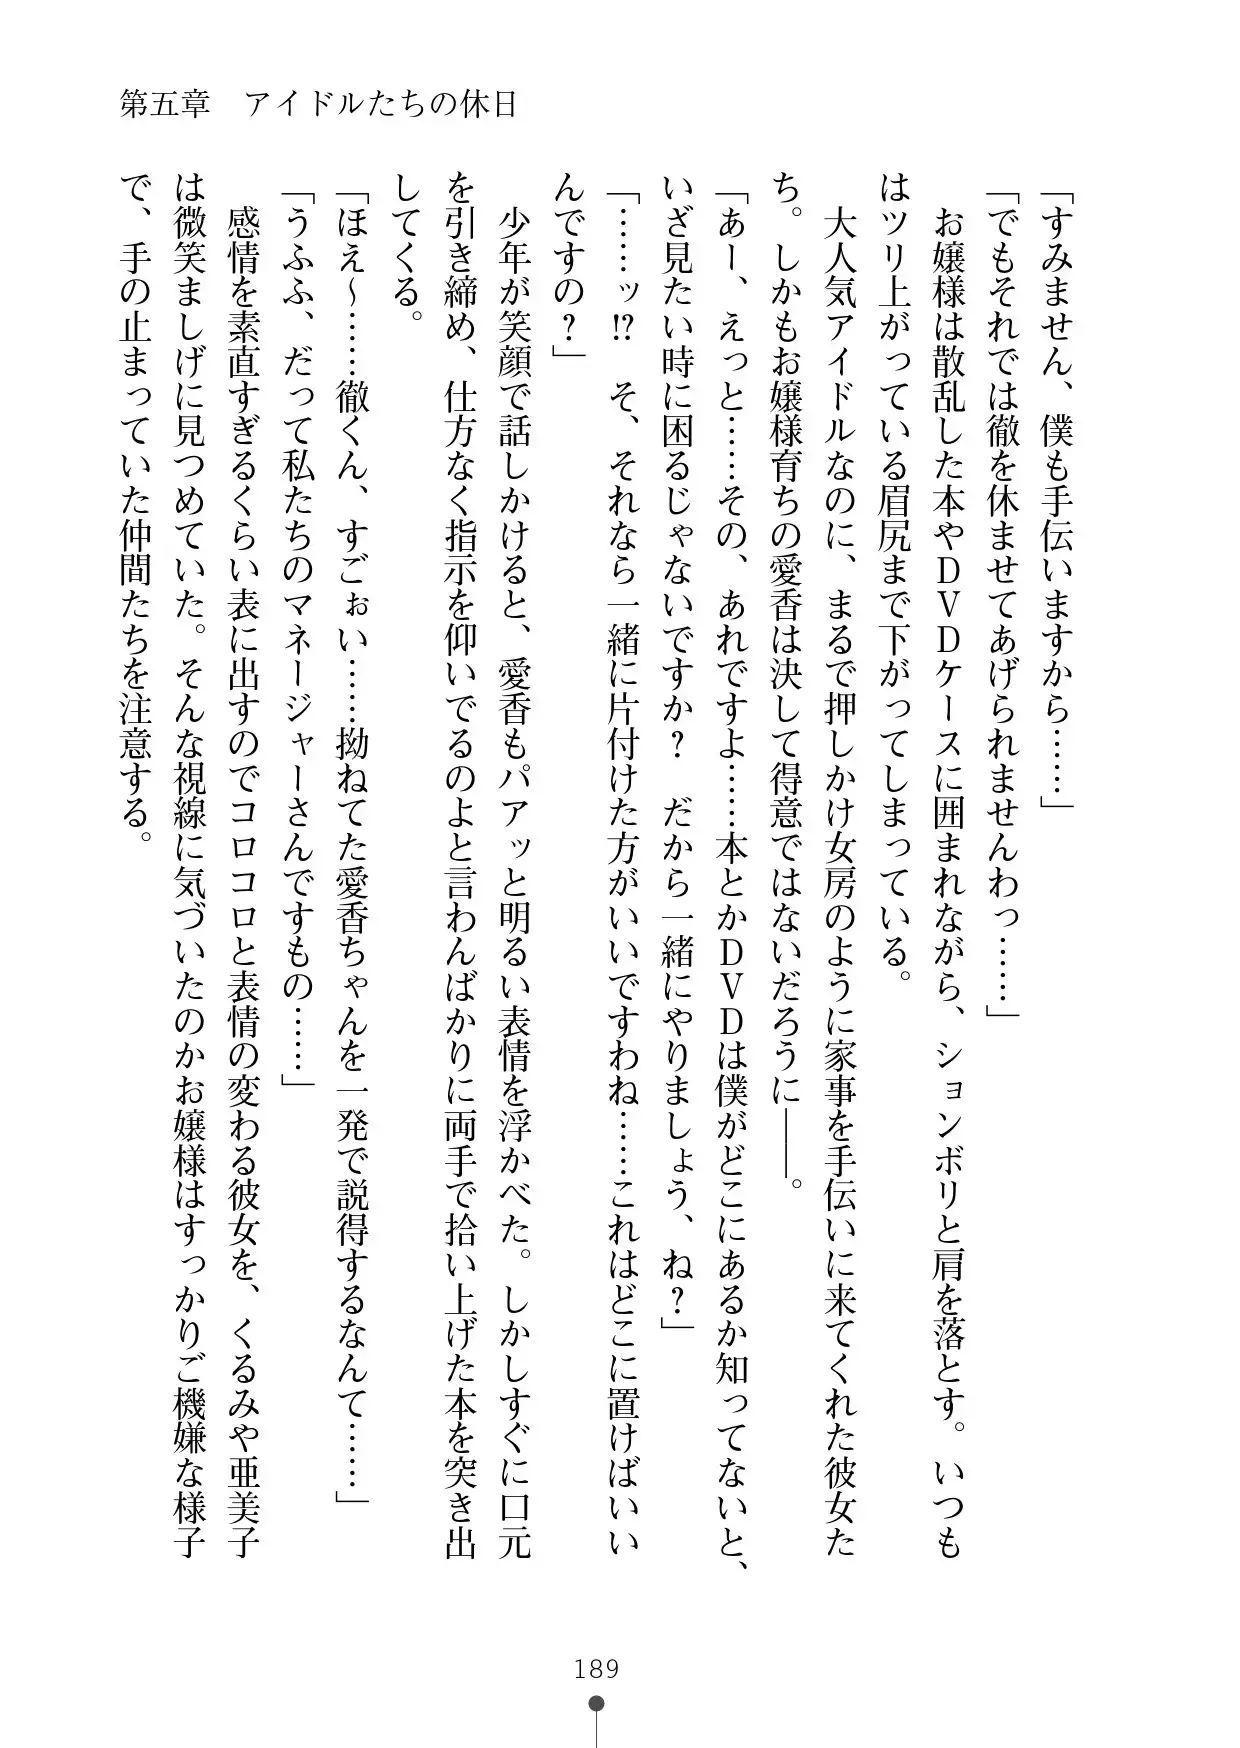 第五章　アイドルたちの休日
「すみません、僕も手伝いますから……」
「でもそれでは徹を休ませてあげられませんわっ……」
　お嬢様は散乱した本やＤＶＤケースに囲まれながら、ションボリと肩を落とす。いつも
はツリ上がっている眉尻まで下がってしまっている。
　大人気アイドルなのに、まるで押しかけ女房のように家事を手伝いに来てくれた彼女た
ち。しかもお嬢様育ちの愛香は決して得意ではないだろうに――。
「あー、えっと……その、あれですよ……本とかＤＶＤは僕がどこにあるか知ってないと、
いざ見たい時に困るじゃないですか？　だから一緒にやりましょう、ね？」
「……ッ!?　そ、それなら一緒に片付けた方がいいですわね……これはどこに置けばいい
んですの？」
　少年が笑顔で話しかけると、愛香もパアッと明るい表情を浮かべた。しかしすぐに口元
を引き締め、仕方なく指示を仰いでるのよと言わんばかりに両手で拾い上げた本を突き出
してくる。
「ほえ～……徹くん、すごぉい……拗ねてた愛香ちゃんを一発で説得するなんて……」
「うふふ、だって私たちのマネージャーさんですもの……」
　感情を素直すぎるくらい表に出すのでコロコロと表情の変わる彼女を、くるみや亜美子
は微笑ましげに見つめていた。そんな視線に気づいたのかお嬢様はすっかりご機嫌な様子
で、手の止まっていた仲間たちを注意する。
189